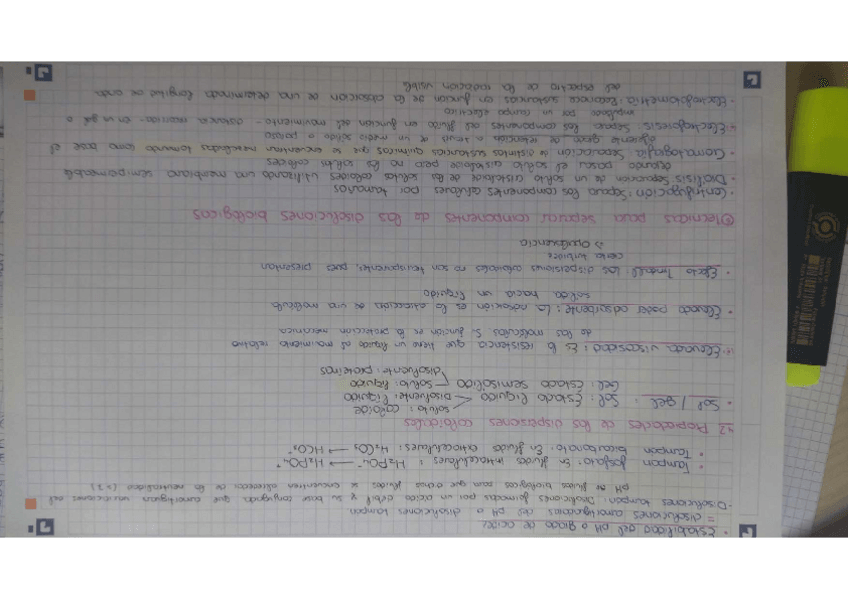 · Estabilidad del pH o grado de acidez
= disoluciones amortiguadoras del pH o disoluciones tampon
- Disoluciones tampon: Disoluciones formadas por un ácido débil y su base conjugada que amortiguan variaciones del
pH de fluidos biológicos para que dichos fluidos se encuentren alrededor de la neutralidad
· Tampon fosfato: En fluidos intracelulares: H₂PO₄⁻ → H₂PO₄⁻
· Tampon bicarbonato: En fluidos extracelulares: H₂CO₃ → HCO₃⁻
4.2 Propiedades de las dispersiones coloidales
· Sol / gel: Sol: Estado líquido soluto: coloide
Disolvente: líquido
Gel: Estado semisólido soluto: líquido
disolvente: proteínas
· Elevada viscosidad: Es la resistencia que tiene un líquido al movimiento relativo
de las moléculas. Su función es la protección mecánica
· Elevado poder adsorbente: La adsorción es la atracción de una molécula
sólida hacia un líquido
· Efecto Tyndall: las dispersiones coloidales no son transparentes, pues presentan
cierta turbidez
↳ Opalescencia
Técnicas para separar componentes de las disoluciones biológicas
· Centrifugación: Separa los componentes celulares por tamaños
· Diálisis: Separación de un soluto cristaloide de los solutos coloides utilizando una membrana semipermeable
dejando pasar el soluto cristaloide pero no los soluto coloides
· Cromatografía: Separación de distintas sustancias químicas que se encuentran mezcladas tomando como base el
diferente grado de retención a través de un medio sólido o papel
- Electroforesis: Separa los componentes del fluido en función del movimiento - distancia recorrida - en un gel o
impulsada por un campo eléctrico
- Electrofotometría: Reconoce sustancias en función de la absorción de una determinada longitud de onda
del espectro de la radiación visible